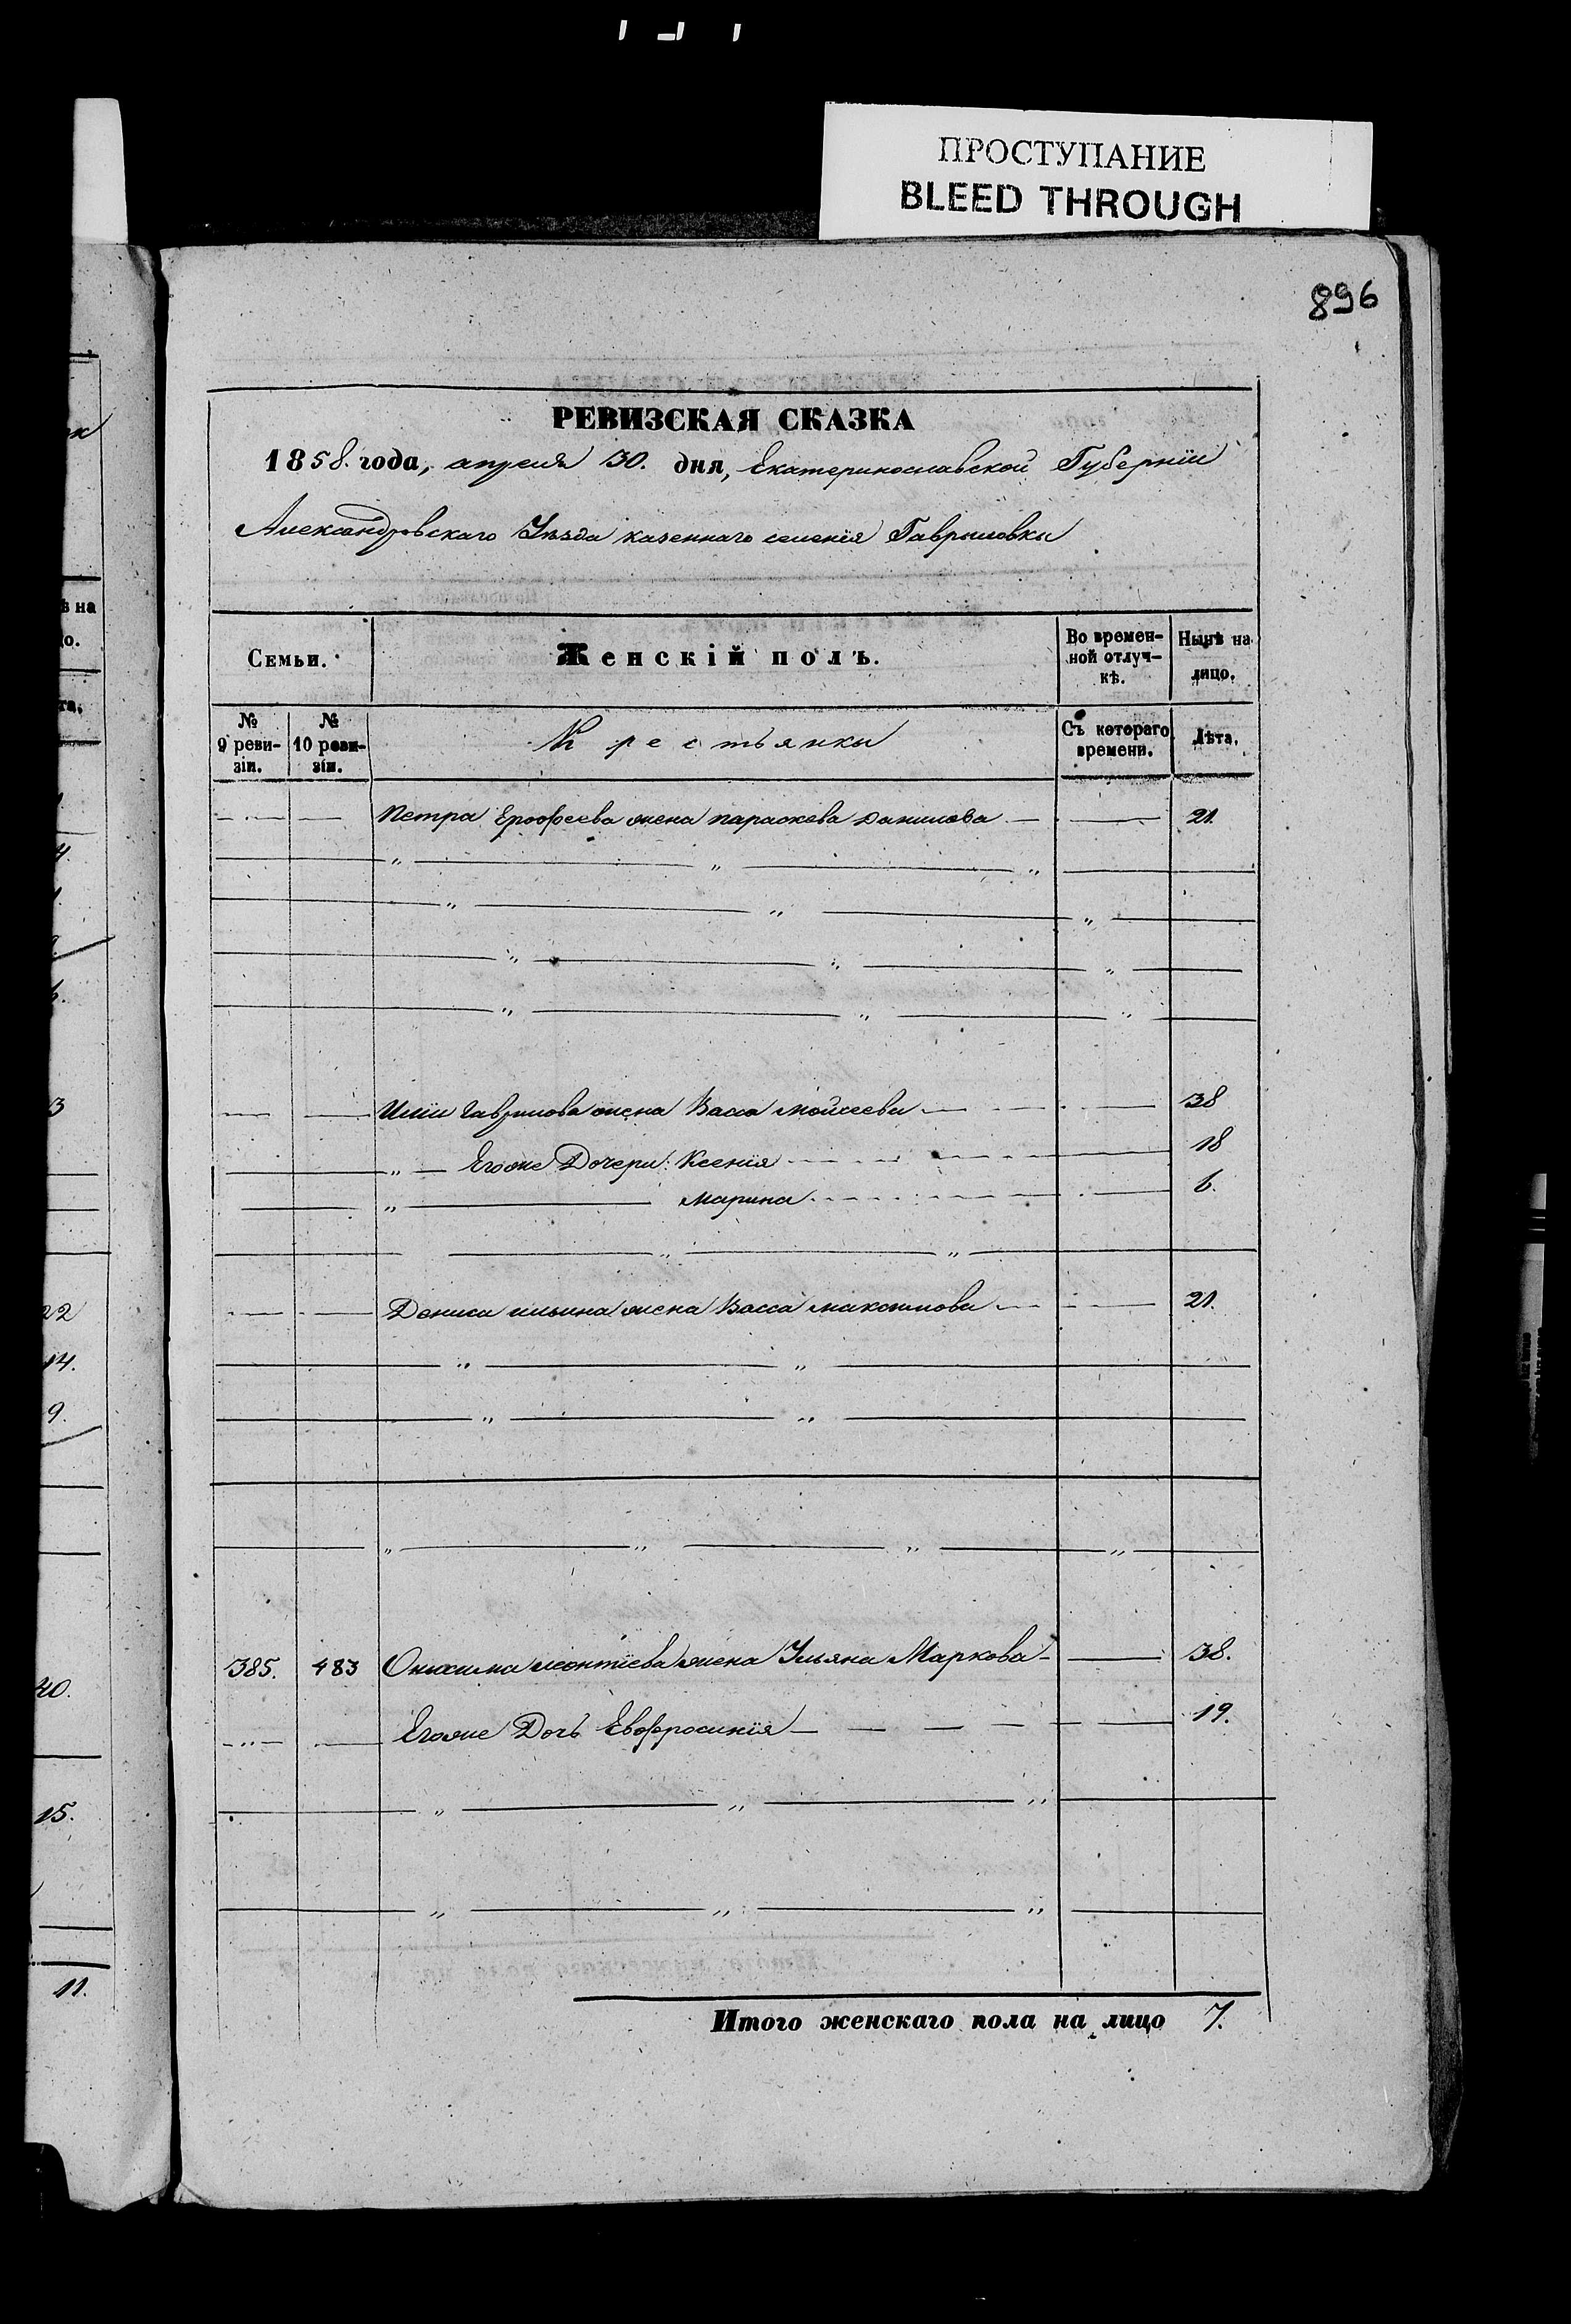 ПРОСТУПАНИЕ
BLEED THROUGH
896
РЕВИЗСКАЯ СКАЗКА
1858. года, апреля 30. дня, Екатеринославской Губернїи
Александровскаго Уѣзда казеннаго селенїя Гавриловки
Семьи. Женскій полъ. Во времен- Нынѣ на
ной отлуч- лицо.
кѣ.
№ 9 реви- зіи. № 10 реви- зіи. Крестьянки Съ котораго времени. Лѣта.
Петра Ерофеева жена параскева Данилова 21.
Илїи Гаврилова жена Васса мойсеева 38
Егоже Дочери: Ксенїя 18
Марина 6.
Дениса ильина жена Васса максимова 21.
385. 483 Онисима леонтїева жена Ульяна Маркова 38.
Егоже Дочь Евфросинїя 19.
Итого женскаго пола на лицо 7.
ѣ на
о.
та.
4.
3
22
14.
9.
40.
15.
11.